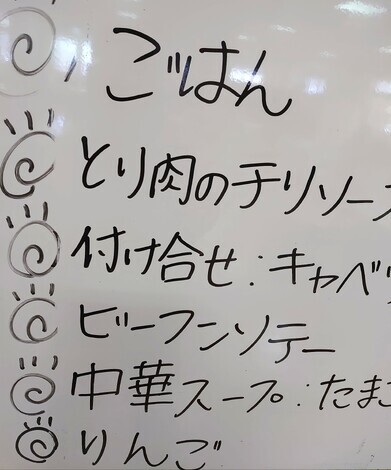 ごはん
とり肉のチリソー
付け合せ：キャベ
ビーフンソテー
中華スープ：たまご
りんご